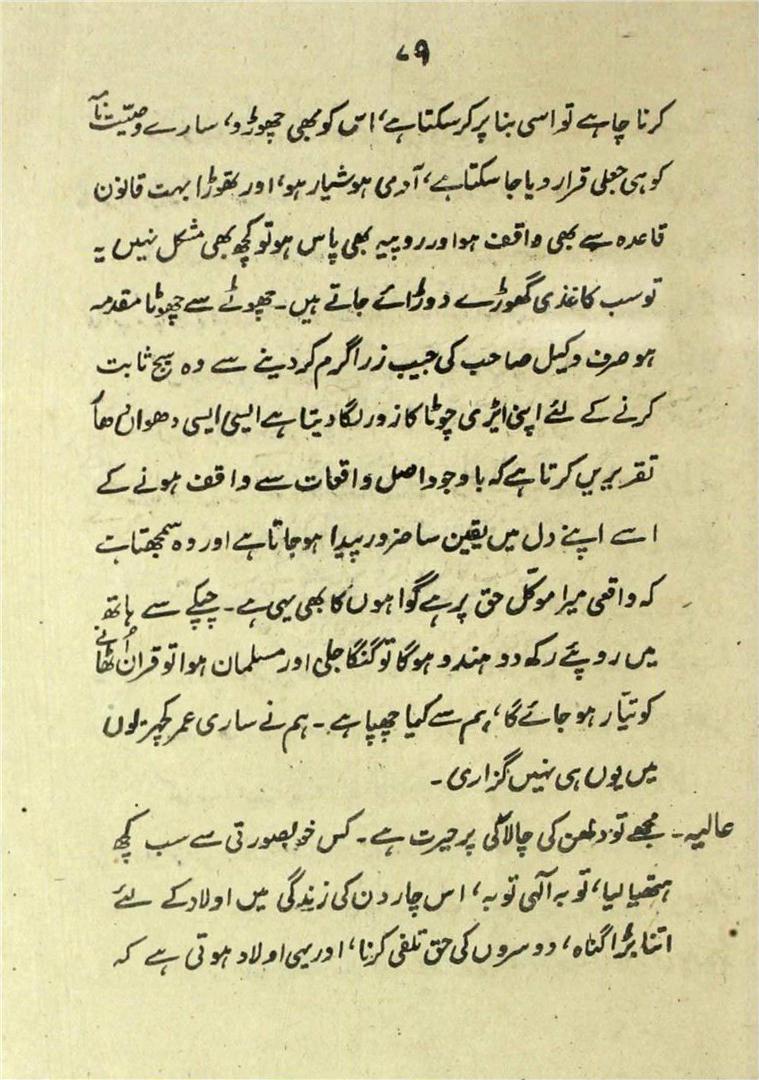 ۷۹
کرنا چاہے تو اسی بنا پر کر سکتا ہے، اس کو بھی چھوڑو، سارے وصیّت نامہ
کو ہی جعلی قرار دیا جا سکتا ہے، آدمی ہوشیار ہو، اور تھوڑا بہت قانون
قاعدہ سے بھی واقف ہو اور روپیہ بھی پاس ہو تو کچھ بھی مشکل نہیں یہ
تو سب کاغذی گھوڑے دوڑائے جاتے ہیں۔ چھوٹے سے چھوٹا مقدمہ
ہو صرف وکیل صاحب کی جیب ذرا گرم کر دینے سے وہ سچ ثابت
کرنے کے لئے اپنی ایڑی چوٹا کا زور لگا دیتا ہے ایسی ایسی دھواں دھار
تقریریں کرتا ہے کہ باوجود اصل واقعات سے واقف ہونے کے
اسے اپنے دل میں یقین سا ضرور پیدا ہو جاتا ہے اور وہ سمجھتا ہے
کہ واقعی میرا موکّل حق پر ہے گواہوں کا بھی یہی ہے۔ چپکے سے ہاتھ
میں روپئے رکھ دو ہندو ہوگا تو گنگا جلی اور مسلمان ہوا تو قران اُٹھانے
کو تیّار ہو جائے گا، ہم سے کیا چھپا ہے۔ ہم نے ساری عمر کچہریوں
میں یوں ہی نہیں گزاری۔
عالیہ۔ مجھے تو دلھن کی چالاکی پر حیرت ہے۔ کس خوبصورتی سے سب کچھ
ہتھیا لیا، توبہ آلٰہی توبہ، اس چار دن کی زندگی میں اولاد کے لئے
اتنا بڑا گناہ، دوسروں کی حق تلفی کرنا، اور یہی اولاد ہوتی ہے کہ